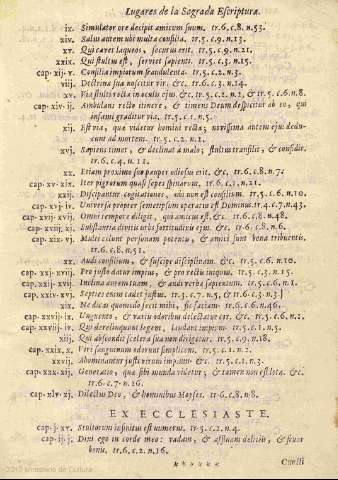 Lugares de la Sagrada Escriptura.
ix. Simulator ore decipit amicum suum. tr.6.c.8.n.53.
xiv. Salus autem ubi multa consilia. tr.5.c.9.n.13.
xv. Qui cavet laqueos, securus erit. tr.5.c.9.n.21.
xxix. Qui stultus est, serviet sapienti. tr.5.c.3.n.15.
cap. xij. v. Consilia impiorum fraudulenta. tr.5.c.2.n.3.
viij. Doctrina sua noscitur vir. &c. tr.6.c.3.n.14.
xv. Via stulti recta in oculis ejus. &c. tr.5.c.2.n.2. & tr.5.c.6.n.8.
cap. xiv. ij. Ambulans recto itinere, & timens Deum despicitur ab eo, qui
infami graditur via. tr.5.c.1.n.5.
xij. Est via, quæ videtur homini recta; novissima autem ejus dedu-
cunt ad mortem. tr.5.c.2.n.2.
xvj. Sapiens timet, & declinat à malo; stultus transilit, & confidit.
tr.6.c.4.n.11.
xx. Etiam proximo suo pauper odiosus erit. &c. tr.6.c.8.n.7.
cap. xv. xix. Iter pigrorum quasi sepes spinarum. tr.6.c.1.n.21.
xxij. Dissipantur cogitationes, ubi non est consilium. tr.5.c.6.n.10.
cap. xvj. iv. Universa propter semetipsum operatus est Dominus. tr.4.c.7.n.43.
cap. xvij. xvij. Omni tempore diligit, qui amicus est. &c. tr.6.c.8.n.48.
cap. xviij. xj. Substantia divitis urbs fortitudinis ejus. &c. tr.6.c.8.n.6.
cap. xix. vj. Multi colunt personam potentis, & amici sunt dona tribuentis.
tr.6.c.8.n.51.
xx. Audi consilium, & suscipe disciplinam. &c. tr.5.c.6.n.10.
cap. xxj. xviij. Pro justo datur impius, & pro rectis iniquus. tr.5.c.3.n.15.
cap. xxij. xvij. Inclina aurem tuam, & audi verba sapientum. tr.5.c.1.n.5.
cap. xxiv. xvj. Septies enim cadet justus. tr.5.c.7.n.5.
xxix. Ne dicas quomodo fecit mihi, sic faciam. tr.6.c.6.n.46.
cap. xxvij. ix. Unguento, & variis odoribus delectatur cor. &c. tr.6.c.1.n.6.
cap. xxviij. iv. Qui derelinquunt legem, laudant impium. tr.5.c.1.n.5.
xiij. Qui abscondit scelera sua non dirigetur. tr.5.c.9.n.18.
cap. xxix. x. Viri sanguinum oderunt simplicem. tr.5.c.1.n.2.
xxvij. Abominantur justi virum impium. &c. tr.5.c.1.n.3.
cap. xxx. xij. Generatio, quæ sibi munda videtur, & tamen non est lota. &c.
tr.6.c.7. n.26.
cap. xlv. xj. Dilectus Deo, & hominibus Moyses. tr.6.c.8.n.8.
EX ECCLESIASTE.
cap. j. xv. Stultorum infinitus est numerus. tr.5.c.2.n.4.
cap. ij. j. Dixi ego in corde meo: vadam, & affluam deliciis, & fruar
bonis. tr.6.c.2.n.16.
******
2012 Ministerio de Cultura